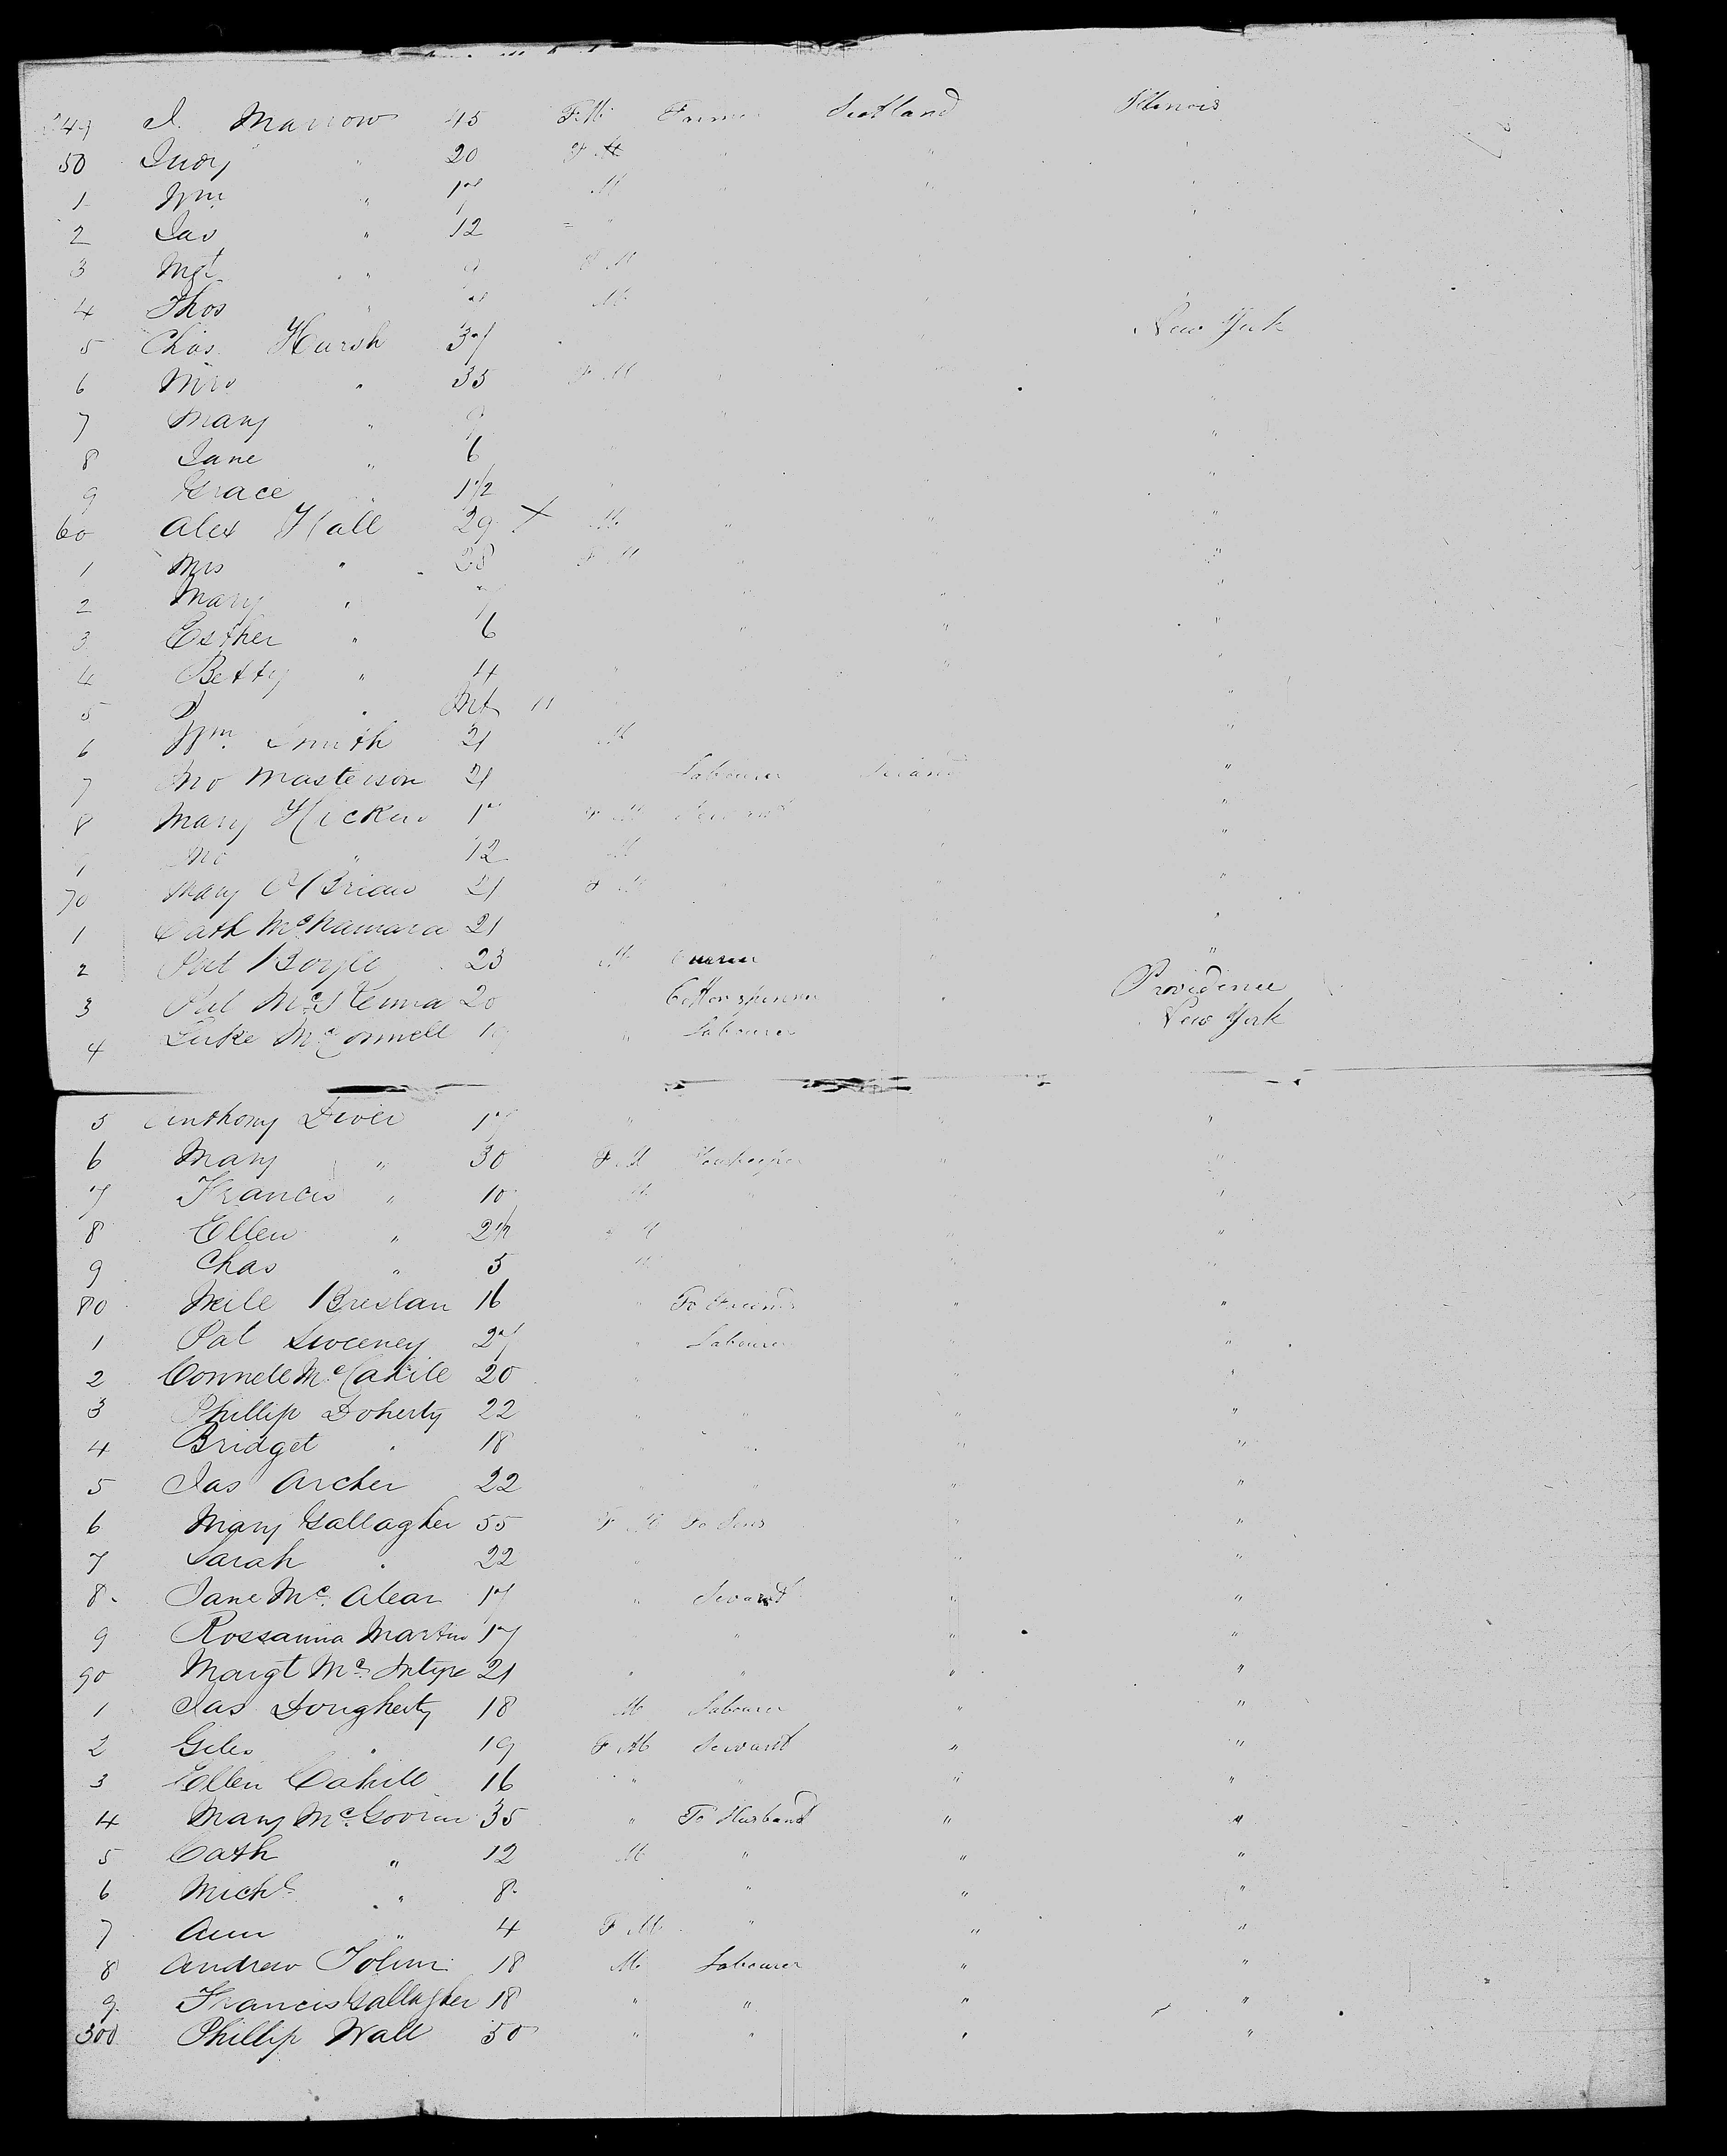 249 J. Marrow 45 F.M. Farmer Scotland Illinois
50 Judy " 20 F M " " "
1 Wm " 17 M " " "
2 Jas " 12 = " "
3 Mgt " " 9 F M "
4 Thos " 7 M " "
5 Chas. Harsh 37 New York
6 Mrs " 35 F M " " "
7 Mary " 9 " "
8 Jane " 6 "
9 Grace " 1 1/2 "
60 Alex Hall 29 X M. " " "
1 Mrs " 28 F M " "
2 Mary " 7 " "
3 Esther " 6 " " "
4 Betty " 4 " " " "
5 " Inf 11 "
6 Wm. Smith 21 M "
7 Jno Masterson 21 Labourer Ireland "
8 Mary Hickey F M Servant "
9 Jno " 12 M " "
70 Mary O'Brien 21 F M " "
1 Cath McNamara 21 " "
2 Pat Boyle 23 M " "
3 Pat McKenna 20 Cotton spinner " Providence
4 Luke McConnell 19 " Labourer New York
5 Anthony Diver 17 " " "
6 Mary " 30 F M Houskeeper " "
7 Francis " 10 M " "
8 Ellen " 2 1/2 F M " "
9 Chas " 5 M " "
80 Neile Breslan 16 " To Friends " "
1 Pat Sweeney 27 " Labourer " "
2 Connell McCahill 20 " " "
3 Phillip Doherty 22 " " " "
4 Bridget " 18 " " "
5 Jas Archer 22 " " " "
6 Mary Gallagher 55 F M To Sons " "
7 Sarah " 22 " " "
8. Jane Mc. Alear 17 " Sevant " "
9 Rossanna Martin 17 " " "
90 Margt Mc. Intyre 21 " " " "
1 Jas Dougherty 18 M Labourer " "
2 Giles " 19 F M Servant " "
3 Ellen Cahill 16 " " " "
4 Mary Mc. Govern 35 " To Husband " "
5 Cath " 12 M " " "
6 Michl " 8. " " "
7 Ann " 4 F M " " "
8 Andrew 18 M. Labourer " "
9. Francis Gallagher 18 " " " "
300 Phillip Wall 50 " " " "